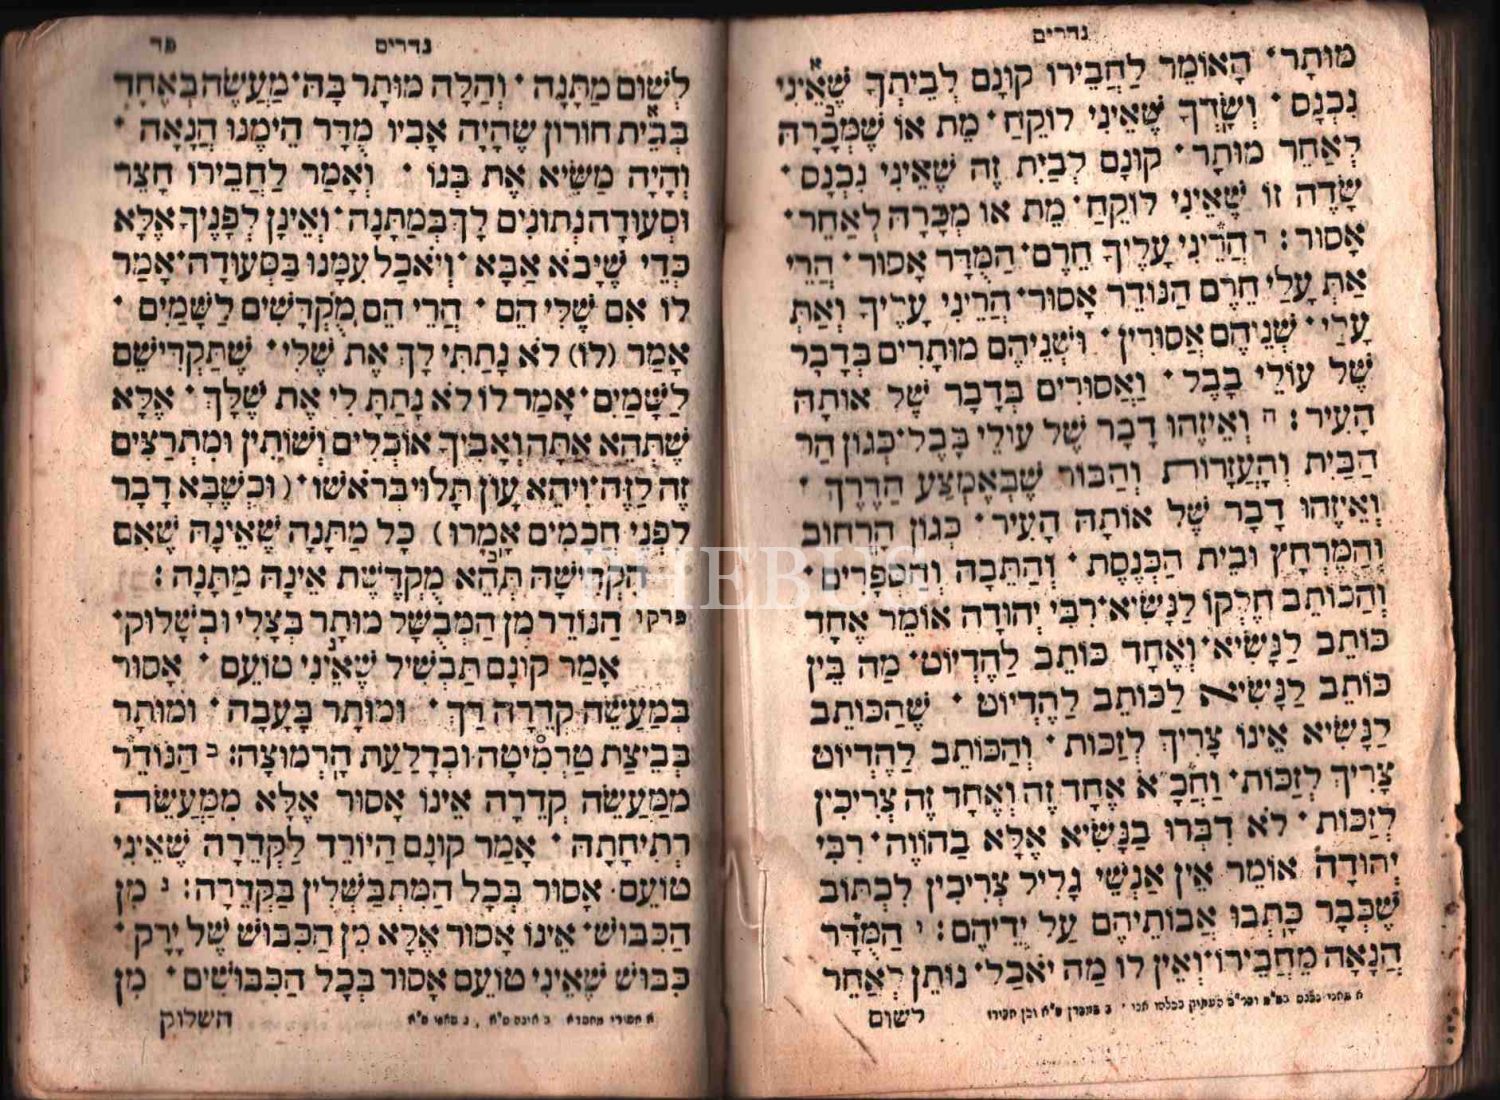 נדרים
מוּתָר· הָאוֹמֵר לַחֲבֵירוֹ קוֹנָם לְבֵיתְךָ שֶׁאֵינִי
נִכְנָס· וְשָׂדְךָ שֶׁאֵינִי לוֹקֵחַ· מֵת אוֹ שֶׁמְּכָרָהּ
לְאַחֵר מוּתָר· קוֹנָם לְבַיִת זֶה שֶׁאֵינִי נִכְנָס·
שָׂדֶה זוֹ שֶׁאֵינִי לוֹקֵחַ· מֵת אוֹ מְכָרָהּ לְאַחֵר·
אָסוּר: י הֲרֵינִי עָלֶיךָ חֵרֶם· הַמּוּדָּר אָסוּר· הֲרֵי
אַתְּ עָלַי חֵרֶם הַנּוֹדֵר אָסוּר· הֲרֵינִי עָלֶיךָ וְאַתְּ
עָלַי· שְׁנֵיהֶם אֲסוּרִין· וּשְׁנֵיהֶם מוּתָרִים בְּדָבָר
שֶׁל עוֹלֵי בָבֶל· וַאֲסוּרִים בְּדָבָר שֶׁל אוֹתָהּ
הָעִיר: ח וְאֵיזֶהוּ דָבָר שֶׁל עוֹלֵי בָבֶל· כְּגוֹן הַר
הַבַּיִת וְהָעֲזָרוֹת וְהַבּוֹר שֶׁבְּאֶמְצַע הַדֶּרֶךְ·
וְאֵיזֶהוּ דָבָר שֶׁל אוֹתָהּ הָעִיר· כְּגוֹן הָרְחוֹב
וְהַמֶּרְחָץ וּבֵית הַכְּנֶסֶת· וְהַתֵּבָה וְהַסְּפָרִים·
וְהַכּוֹתֵב חֶלְקוֹ לַנָּשִׂיא· רִבִּי יְהוּדָה אוֹמֵר אֶחָד
כּוֹתֵב לַנָּשִׂיא· וְאֶחָד כּוֹתֵב לַהֶדְיוֹט· מַה בֵּין
כּוֹתֵב לַנָּשִׂיא לַכּוֹתֵב לַהֶדְיוֹט· שֶׁהַכּוֹתֵב
לַנָּשִׂיא אֵינוֹ צָרִיךְ לְזַכּוֹת· וְהַכּוֹתֵב לַהֶדְיוֹט
צָרִיךְ לְזַכּוֹת· וַחֲכָ״א אֶחָד זֶה וְאֶחָד זֶה צְרִיכִין
לְזַכּוֹת· לֹא דִבְּרוּ בַנָּשִׂיא אֶלָּא בַהוֹוֶה· רִבִּי
יְהוּדָה אוֹמֵר אֵין אַנְשֵׁי גָלִיל צְרִיכִין לִכְתּוֹב
שֶׁכְּבָר כָּתְבוּ אֲבוֹתֵיהֶם עַל יְדֵיהֶם: י הַמּוּדָּר
הֲנָאָה מֵחֲבֵירוֹ· וְאֵין לוֹ מַה יֹּאכַל· נוֹתֵן לְאַחֵר
לשום
נדרים
פד
לְשׁוּם מַתָּנָה· וְהַלָּה מוּתָר בָּהּ· מַעֲשֶׂה בְאֶחָד
בְּבֵית חוֹרוֹן שֶׁהָיָה אָבִיו מֻדָּר הֵימֶנּוּ הֲנָאָה·
וְהָיָה מַשִּׂיא אֶת בְּנוֹ· וְאָמַר לַחֲבֵירוֹ חָצֵר
וּסְעוּדָה נְתוּנִים לָךְ בְּמַתָּנָה· וְאֵינָן לְפָנֶיךָ אֶלָּא
כְּדֵי שֶׁיָּבֹא אַבָּא· וְיֹאכַל עִמָּנוּ בַּסְּעוּדָה· אָמַר
לוֹ אִם שֶׁלִּי הֵם· הֲרֵי הֵם מֻקְדָּשִׁים לַשָּׁמַיִם·
אָמַר (לוֹ) לֹא נָתַתִּי לָךְ אֶת שֶׁלִּי· שֶׁתַּקְדִּישֵׁם
לַשָּׁמַיִם· אָמַר לוֹ לֹא נָתַתָּ לִי אֶת שֶׁלָּךְ· אֶלָּא
שֶׁתְּהֵא אַתָּה וְאָבִיךָ אוֹכְלִים וְשׁוֹתִין וּמִתְרַצִּים
זֶה לָזֶה· וִיהֵא עָוֹן תָּלוּי בְּרֹאשׁוֹ· (וּכְשֶׁבָּא דָבָר
לִפְנֵי חֲכָמִים אָמְרוּ) כָּל מַתָּנָה שֶׁאֵינָהּ שֶׁאִם
הִקְדִּישָׁהּ תְּהֵא מֻקְדֶּשֶׁת אֵינָהּ מַתָּנָה:
פרק ו הַנּוֹדֵר מִן הַמְבֻשָּׁל מוּתָר בְּצָלִי וּבְשָׁלוּק·
אָמַר קוֹנָם תַּבְשִׁיל שֶׁאֵינִי טוֹעֵם· אָסוּר
בְּמַעֲשֵׂה קְדֵרָה רַךְ· וּמוּתָר בָּעָבָה· וּמוּתָר
בְּבֵיצַת טַרְמִיטָה· וּבִדְלַעַת הָרְמוּצָה: ב הַנּוֹדֵר
מִמַּעֲשֵׂה קְדֵרָה אֵינוֹ אָסוּר אֶלָּא מִמַּעֲשֵׂה
רְתִיחָתָהּ· אָמַר קוֹנָם הַיּוֹרֵד לַקְּדֵרָה שֶׁאֵינִי
טוֹעֵם· אָסוּר בְּכָל הַמִּתְבַּשְּׁלִין בַּקְּדֵרָה: ג מִן
הַכָּבוּשׁ· אֵינוֹ אָסוּר אֶלָּא מִן הַכָּבוּשׁ שֶׁל יָרָק·
כָּבוּשׁ שֶׁאֵינִי טוֹעֵם אָסוּר בְּכָל הַכְּבוּשִׁים· מִן
השלוק